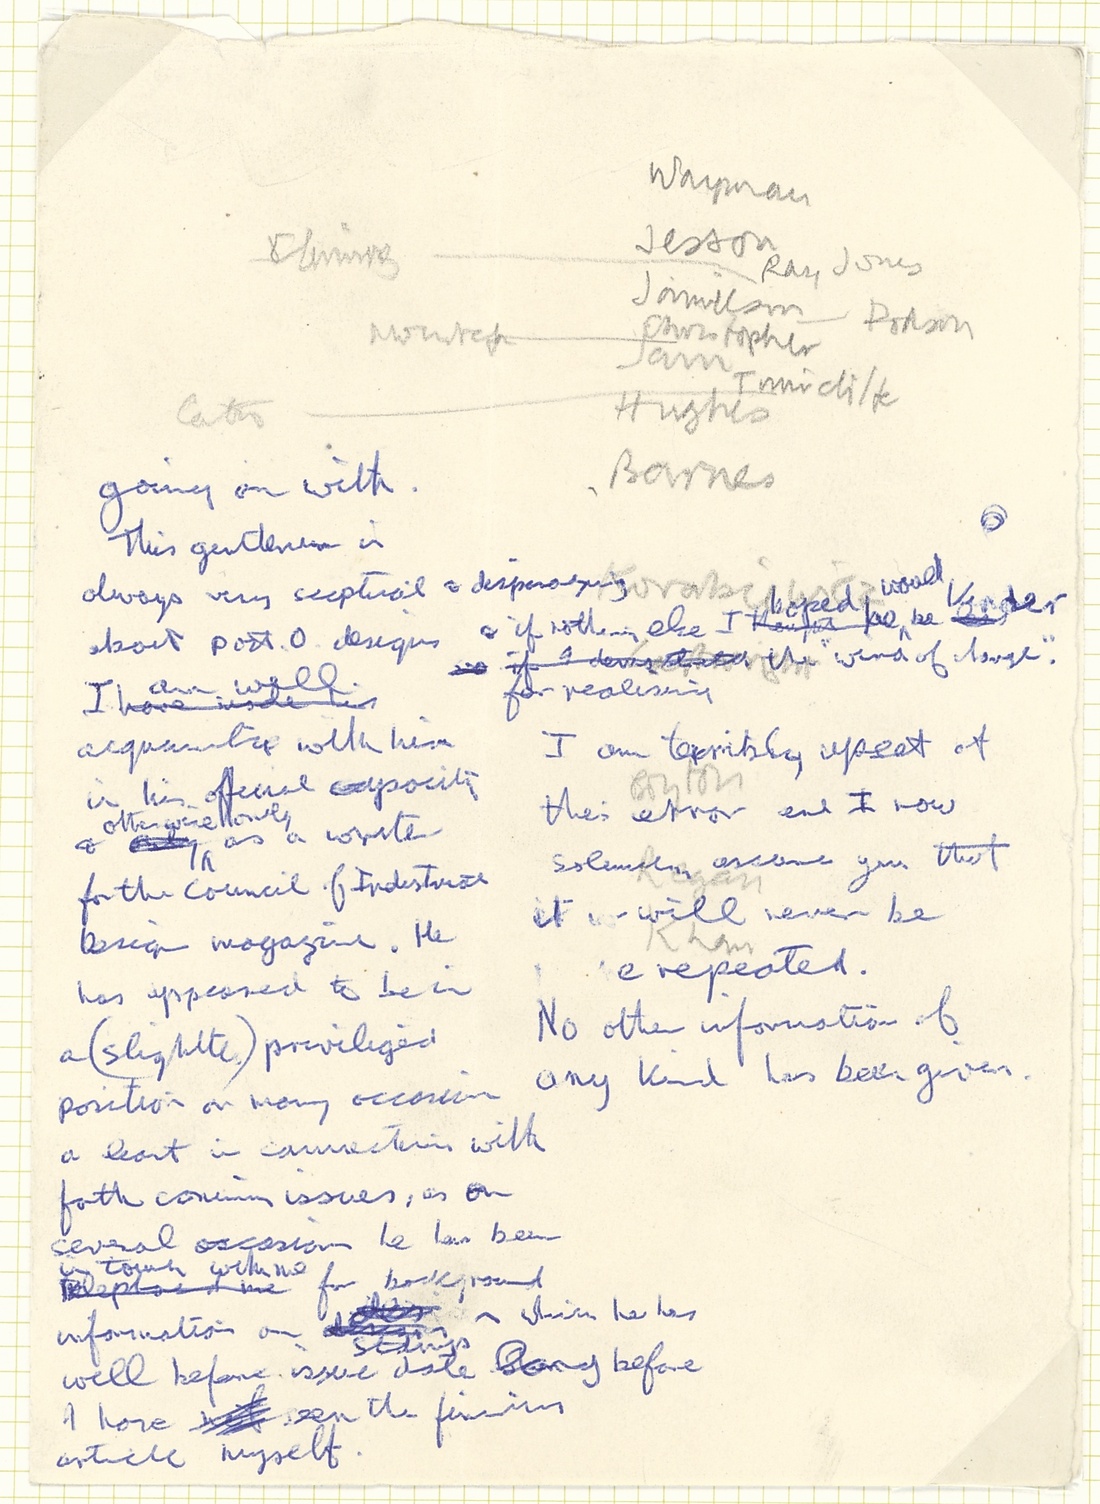 Jesson
Ray Jones
Dodson
Christopher
Hughes
Barnes
going on with.
This gentleman is
always very sceptical & disparaging
about post. O. designs
& if nothing else I hoped he would be kinder
the "wind of change".
for realising
I am well
have made his
acquaintance with him
in his official capacity
& otherwise as a writer
for the Council of Industrial
Design magazine. He
has appeared to be in
a (slightly) privileged
position on many occasion
a least in connection with
forthcoming issues, as on
several occasions he has been
in touch with me
for background
information on
stamps
which he has
well before issue date before
I have seen the finished
article myself.
I am terribly upset at
this error and I now
solemnly assure you that
it will never be
repeated.
No other information of
any kind has been given.
Regan
Khan